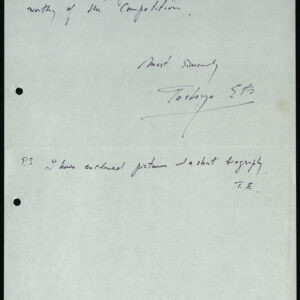 worthy of the Competition.
Most Sincerely
P.S I have enclosed pictures & a short biography.
T. E.